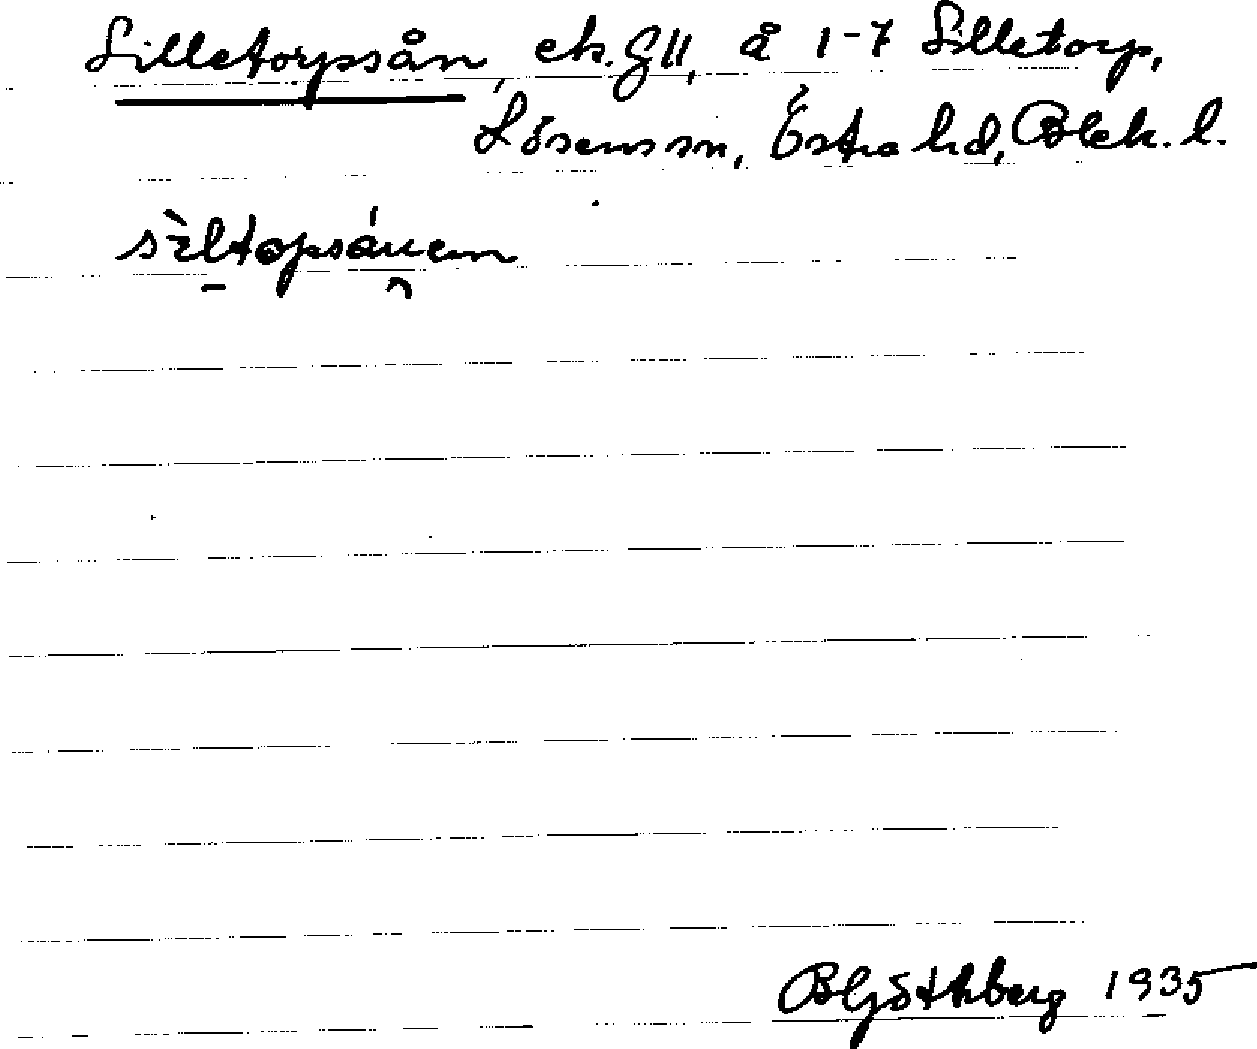 Silletorpsån, ek. G11, å 1-7 Silletorp,
Lösens sn, Östra hd, Blek. l.
sìltopsáuen
B Göthberg 1935